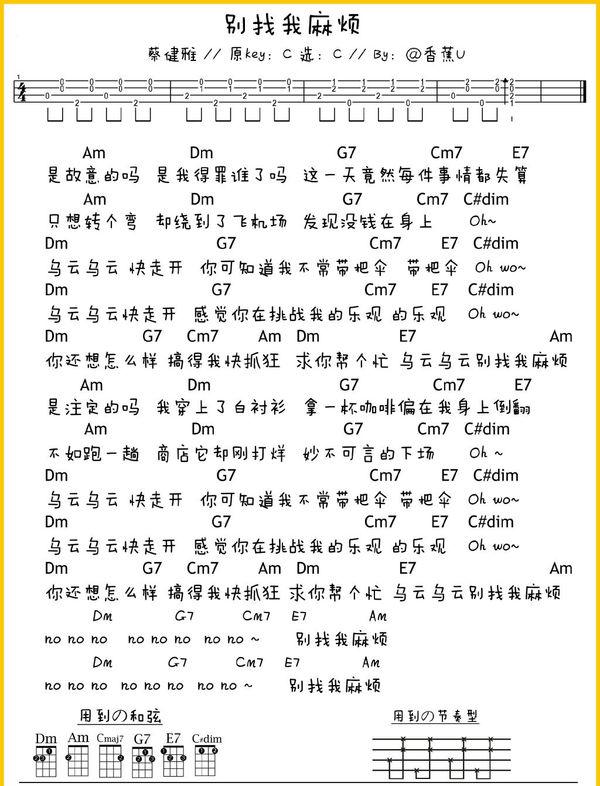 别找我麻烦
蔡健雅 // 原key: C 选: C // By: @香蕉U
Am Dm G7 Cm7 E7
是故意的吗 是我得罪谁了吗 这一天竟然每件事情都失算
Am Dm G7 Cm7 C#dim
只想转个弯 却绕到了飞机场 发现没钱在身上 Oh~
Dm G7 Cm7 E7 C#dim
乌云乌云 快走开 你可知道我不常带把伞 带把伞 Oh wo~
Dm G7 Cm7 E7 C#dim
乌云乌云快走开 感觉你在挑战我的乐观 的乐观 Oh wo~
Dm G7 Cm7 Am Dm E7 Am
你还想怎么样 搞得我快抓狂 求你帮个忙 乌云乌云别找我麻烦
Am Dm G7 Cm7 E7
是注定的吗 我穿上了白衬衫 拿一杯咖啡偏在我身上倒翻
Am Dm G7 Cm7 C#dim
不如跑一趟 商店它却刚打烊 妙不可言的下场 Oh ~
Dm G7 Cm7 E7 C#dim
乌云乌云 快走开 你可知道我不常带把伞 带把伞 Oh wo~
Dm G7 Cm7 E7 C#dim
乌云乌云快走开 感觉你在挑战我的乐观 的乐观 Oh wo~
Dm G7 Cm7 Am Dm E7 Am
你还想怎么样 搞得我快抓狂 求你帮个忙 乌云乌云别找我麻烦
Dm G7 Cm7 E7 Am
no no no no no no no no ~ 别找我麻烦
Dm G7 Cm7 E7 Am
no no no no no no no no ~ 别找我麻烦
用到の和弦 用到の节奏型
Dm Am Cmaj7 G7 E7 C#dim